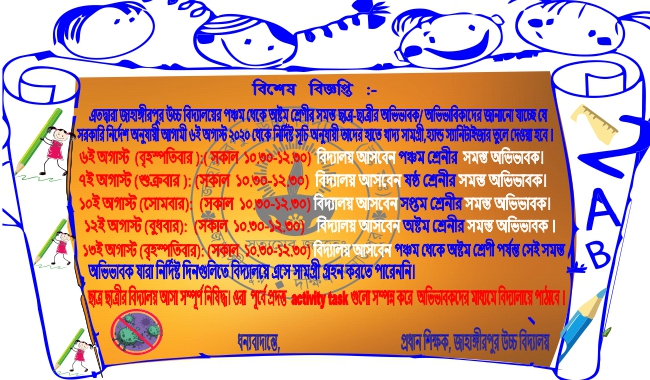 বিশেষ বিজ্ঞপ্তি :-
এতদ্বারা জাহাঙ্গীরপুর উচ্চ বিদ্যালয়ের পঞ্চম থেকে অষ্টম শ্রেণীর সমস্ত ছাত্র-ছাত্রীর অভিভাবক/ অভিভাবিকাদের জানানো যাচ্ছে যে
সরকারি নির্দেশ অনুযায়ী আগামী ৬ই অগাস্ট ২০২০ থেকে নির্দিষ্ট সূচি অনুযায়ী তাদের হাতে খাদ্য সামগ্রী,হ্যান্ড স্যানিটাইজার তুলে দেওয়া হবে ।
৬ই অগাস্ট (বৃহস্পতিবার ):(সকাল ১০.৩০-১২.৩০) বিদ্যালয় আসবেন পঞ্চম শ্রেনীর সমস্ত অভিভাবক।
৭ই অগাস্ট (শুক্রবার ): (সকাল ১০.৩০-১২.৩০) বিদ্যালয় আসবেন ষষ্ঠ শ্রেনীর সমস্ত অভিভাবক।
১০ই অগাস্ট (সোমবার): (সকাল ১০.৩০-১২.৩০) বিদ্যালয় আসবেন সপ্তম শ্রেনীর সমস্ত অভিভাবক।
১২ই অগাস্ট (বুধবার): (সকাল ১০.৩০-১২.৩০) বিদ্যালয় আসবেন অষ্টম শ্রেনীর সমস্ত অভিভাবক ।
১৩ই অগাস্ট (বৃহস্পতিবার): (সকাল ১০.৩০-১২.৩০) বিদ্যালয় আসবেন পঞ্চম থেকে অষ্টম শ্রেণী পর্যন্ত সেই সমস্ত
অভিভাবক যারা নির্দিষ্ট দিনগুলিতে বিদ্যালয়ে এসে সামগ্রী গ্রহন করতে পারেননি।
ছাত্র ছাত্রীর বিদ্যালয় আসা সম্পূর্ণ নিষিদ্ধ। ওরা পূর্বে প্রদত্ত activity task গুলো সম্পন্ন করে অভিভাবকদের মাধ্যমে বিদ্যালয়ে পাঠাবে ।
ধন্যবাদান্তে,
প্রধান শিক্ষক, জাহাঙ্গীরপুর উচ্চ বিদ্যালয়
A
B